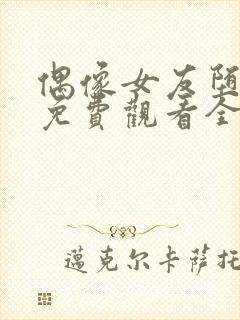 偶像女友堕
免費觀看全
邁克尔卡萨托